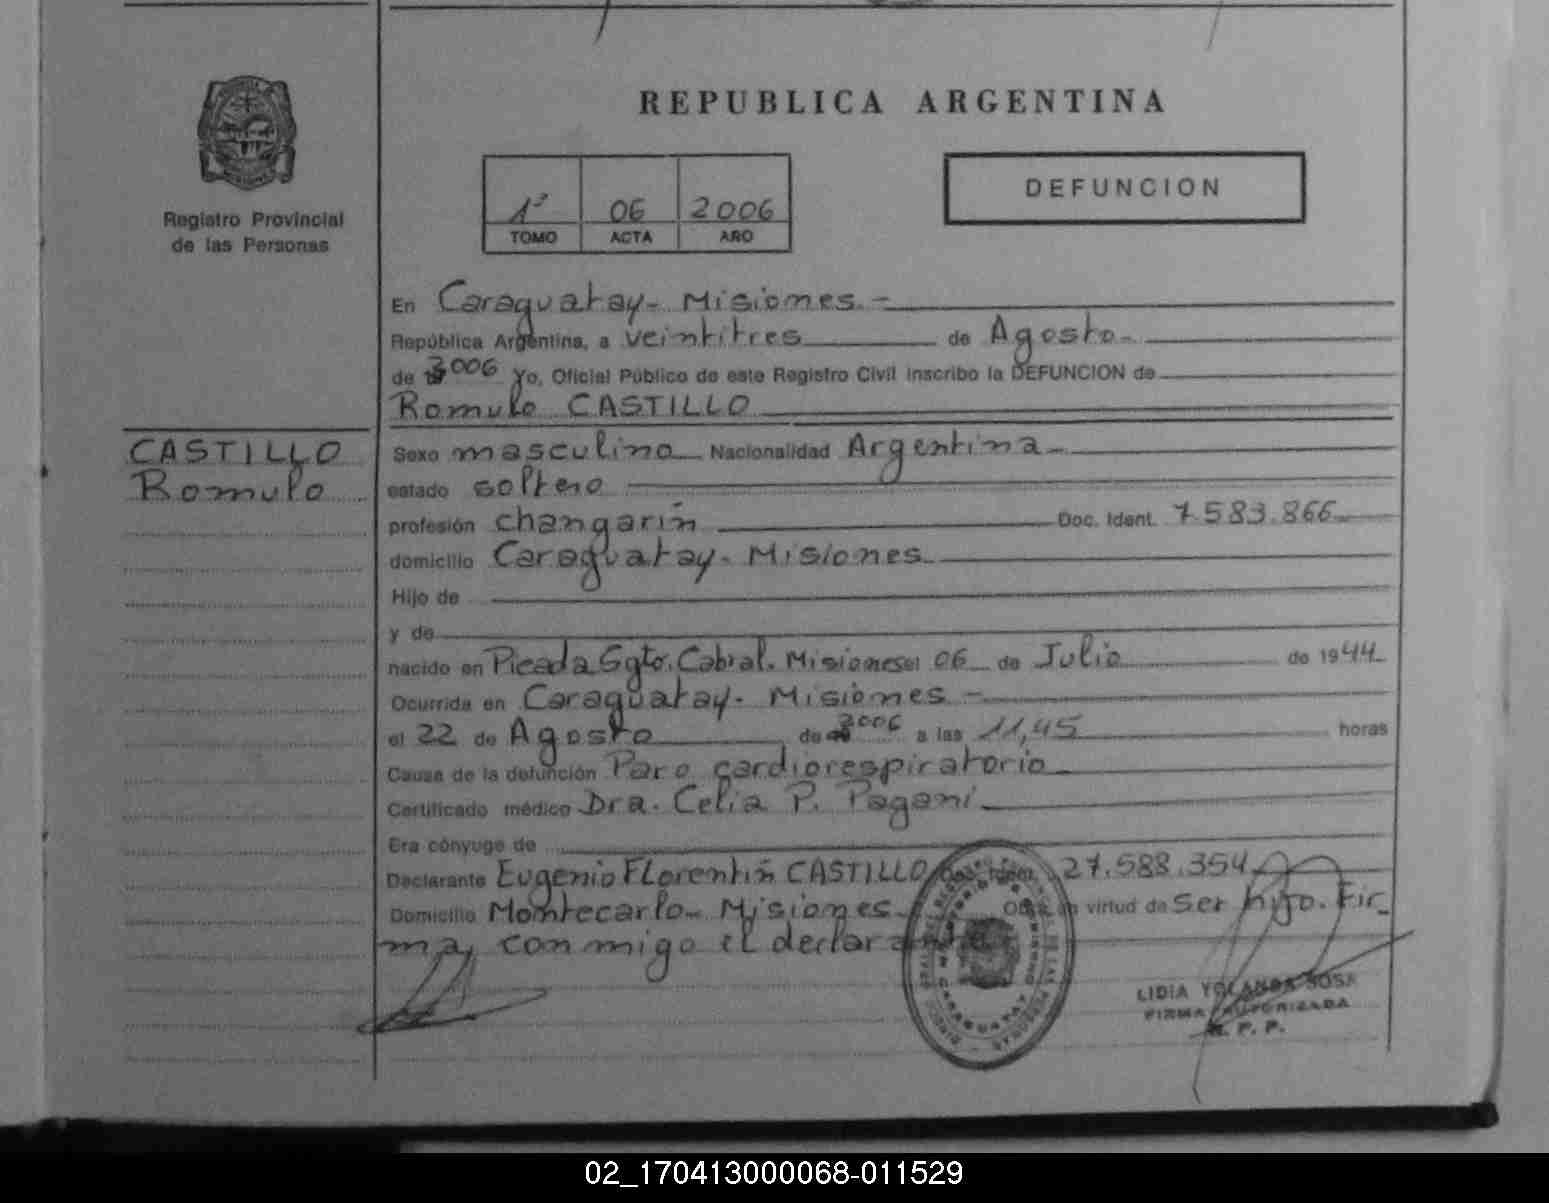 REPUBLICA ARGENTINA
DEFUNCION
1º 06 2006
TOMO ACTA AÑO
Registro Provincial
de las Personas
En Caraguatay- Misiones.-
República Argentina, a veintitres de Agosto
de 2006 Yo, Oficial Público de este Registro Civil inscribo la DEFUNCION de
Romulo CASTILLO
CASTILLO
Romulo
Sexo masculino Nacionalidad Argentina
estado soltero
profesión changarín Doc. Ident. 7.583.866
domicilio Caraguatay- Misiones
Hijo de
y de
nacido en Picada Sgto. Cabral. Misiones el 06 de Julio de 1944
Ocurrida en Caraguatay- Misiones -
el 22 de Agosto de 2006 a las 11,45 horas
Causa de la defunción Paro cardiorespiratorio
Certificado médico Dra. Celia P. Pagani
Era cónyuge de
Declarante Eugenio Florentín CASTILLO Doc. Ident. 27.588.354
Domicilio Montecarlo- Misiones Obra en virtud de ser hijo. Fir-
ma, conmigo el declarante
LIDIA YOLANDA SOSA
FIRMA AUTORIZADA
R. P. P.
CARAGUATAY
02_170413000068-011529